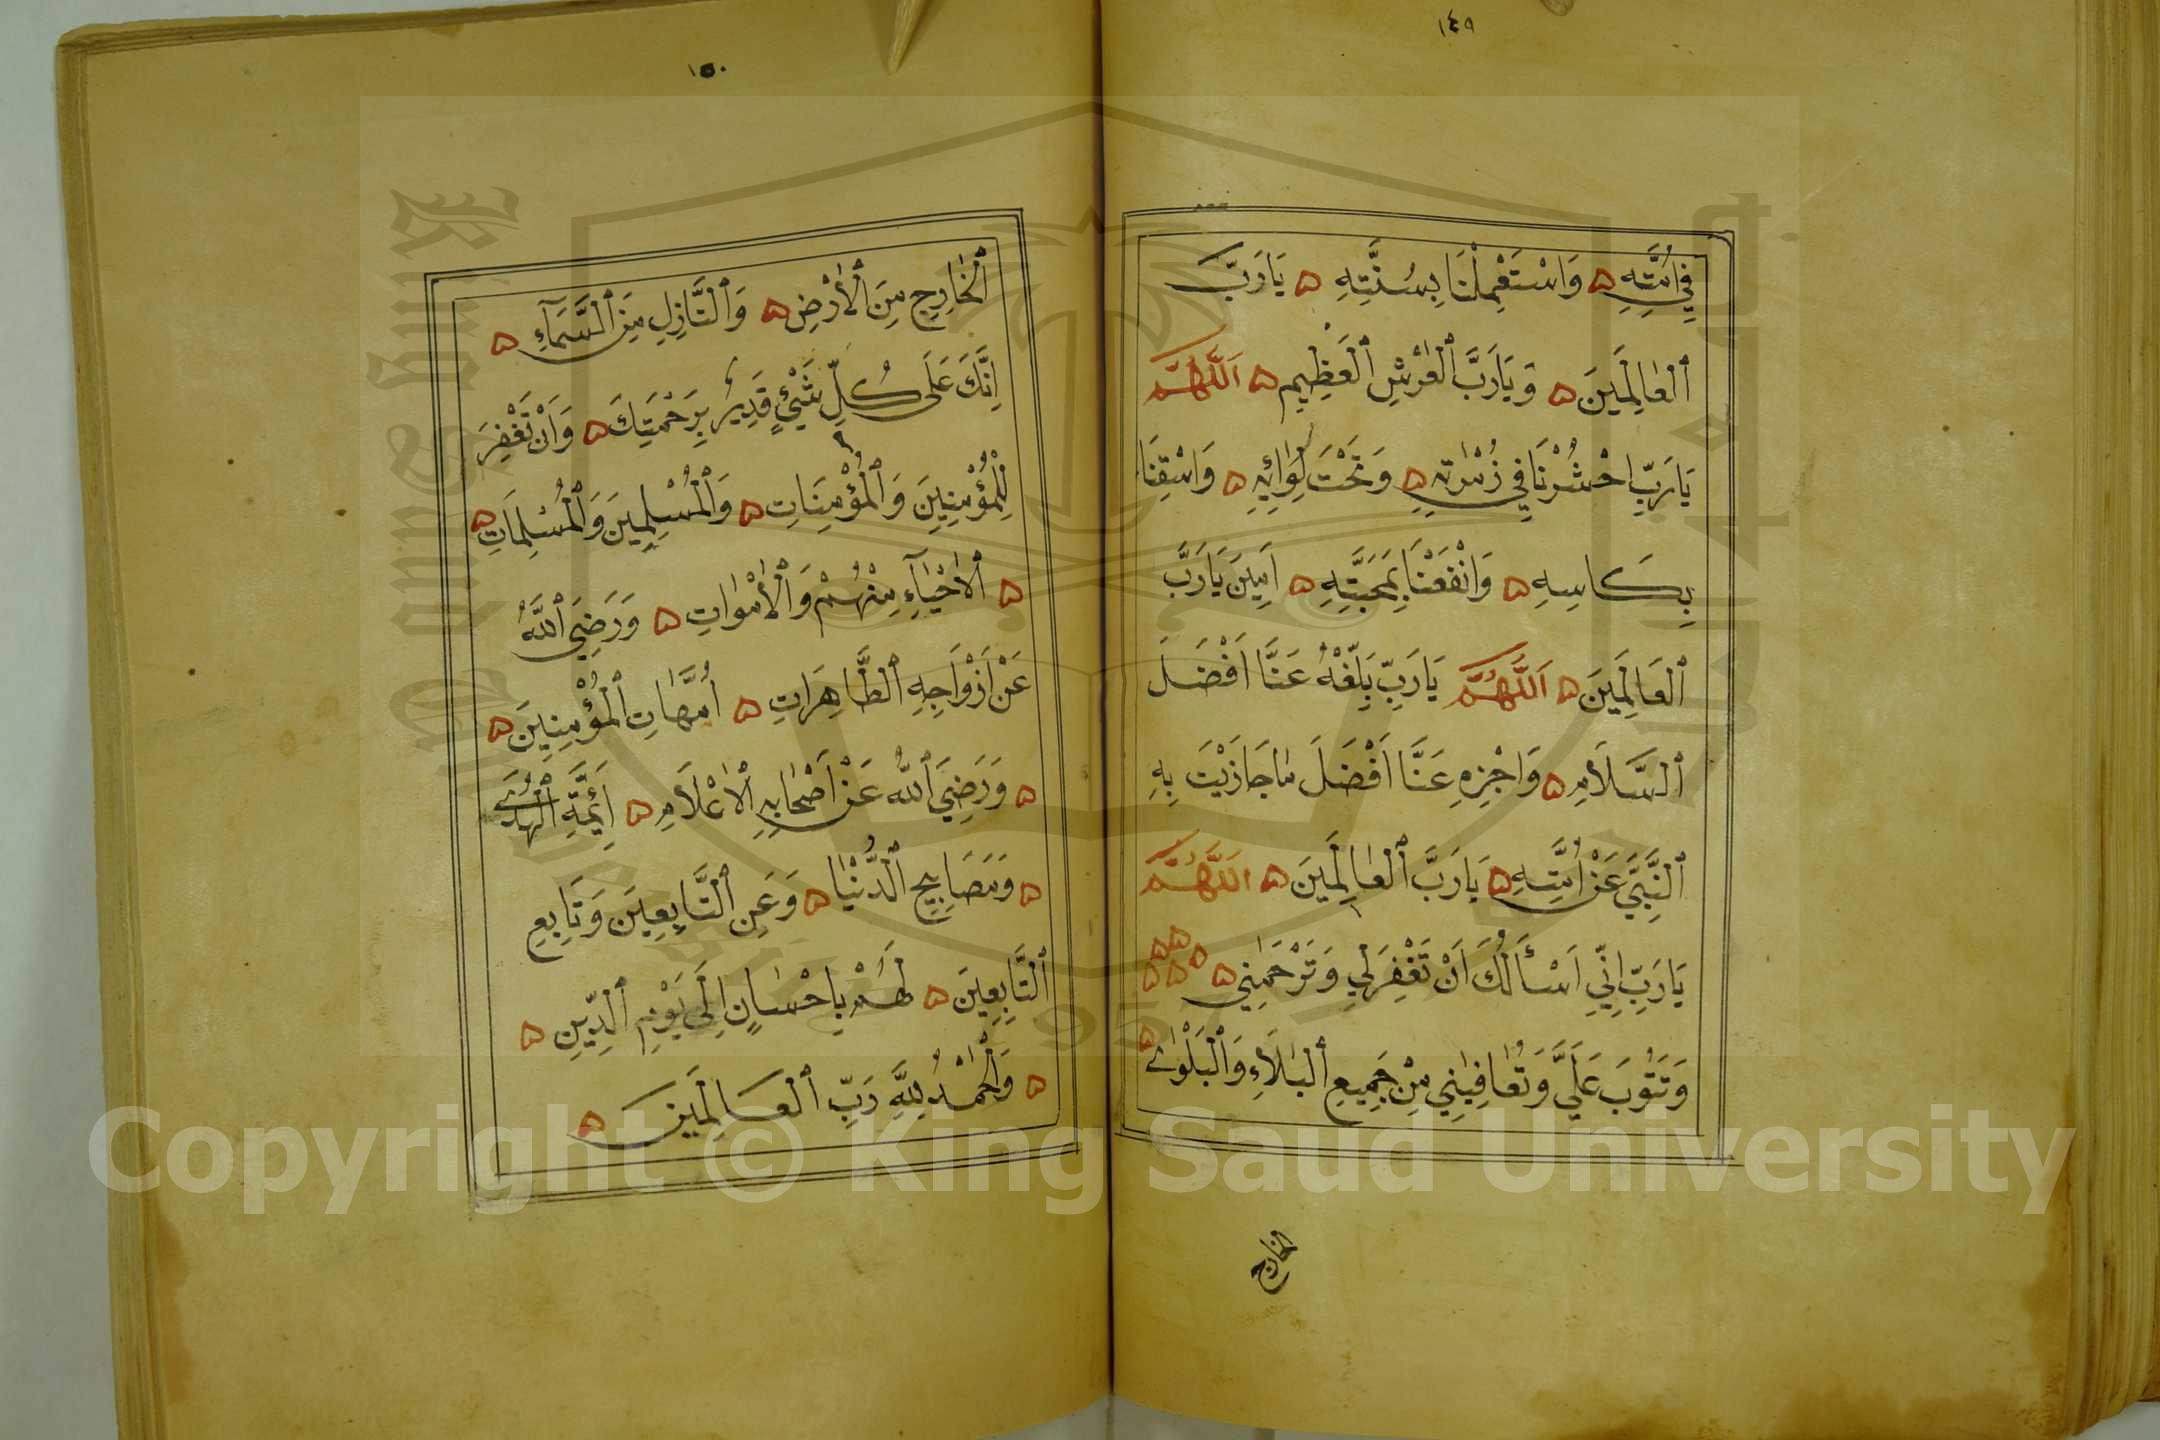 ١٤٩
فِي اُمَّتِهِ ۝ وَاسْتَعْمِلْنَا بِسُنَّتِهِ ۝ يَارَبَّ
ٱلْعٰالَمِينَ ۝ وَيَارَبَّ ٱلْعَرْشِ ٱلْعَظِيمِ ۝ اَللّٰهُمَّ
يَارَبِّ احْشُرْنَا فِي زُمْرَتِهِ ۝ وَتَحْتَ لِوَائِهِ ۝ وَاسْقِنَا
بِكَاسِهِ ۝ وَانْفَعْنَا بِمَحَبَّتِهِ ۝ اَمِينَ يَارَبَّ
ٱلْعَالَمِينَ ۝ اَللّٰهُمَّ يَارَبِّ بَلِّغْهُ عَنَّا اَفْضَلَ
ٱلسَّلَامِ ۝ وَاجْزِهِ عَنَّا اَفْضَلَ مٰا جَازَيْتَ بِهِ
ٱلنَّبِيَّ عَنْ اُمَّتِهِ ۝ يَارَبَّ ٱلْعٰالَمِينَ ۝ اَللّٰهُمَّ
يَارَبِّ اِنِّي اَسْأَلُكَ اَنْ تَغْفِرَ لِي وَتَرْحَمَنِي ۝ ۝ ۝ ۝ ۝ ۝
وَتَتُوبَ عَلَيَّ وَتُعٰافِيَنِي مِنْ جَمِيعِ ٱلْبَلَاءِ وَٱلْبَلْوٰاءِ ۝
الخارج
١٥٠
ٱلْخٰارِجِ مِنَ ٱلْأَرْضِ ۝ وَٱلنَّازِلِ مِنَ ٱلسَّمَآءِ ۝
اِنَّكَ عَلَى كُلِّ شَيْءٍ قَدِيرٌ بِرَحْمَتِكَ ۝ وَاَنْ تَغْفِرَ
لِلْمُؤْمِنِينَ وَٱلْمُؤْمِنَاتِ ۝ وَٱلْمُسْلِمِينَ وَٱلْمُسْلِمَاتِ ۝
۝ ٱلْاَحْيَآءِ مِنْهُمْ وَٱلْأَمْوٰاتِ ۝ وَرَضِيَ ٱللّٰهُ
عَنْ اَزْوَاجِهِ ٱلطَّاهِرَاتِ ۝ اُمَّهَاتِ ٱلْمُؤْمِنِينَ ۝
۝ وَرَضِيَ ٱللّٰهُ عَنْ اَصْحَابِهِ ٱلْاَعْلَامِ ۝ اَئِمَّةِ ٱلْهُدَى
۝ وَمَصَابِيحِ ٱلدُّنْيٰا ۝ وَعَنِ ٱلتَّابِعِينَ وَتَابِعِ
ٱلتَّابِعِينَ ۝ لَهُمْ بِاِحْسَانٍ اِلَى يَوْمِ ٱلدِّينِ ۝
۝ وَٱلْحَمْدُ لِلّٰهِ رَبِّ ٱلْعَالَمِينَ ۝
Copyright © King Saud University